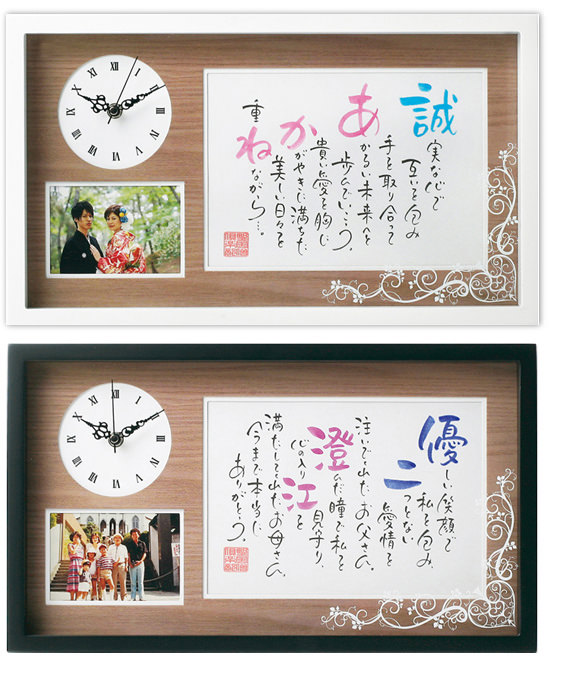 XII
I
II
III
IIII
V
VI
VII
VIII
IX
X
XI
誠
実な心で
互いを包み
手を取り合って
あ
かるい未来へと
歩んでいこう。
貴い愛を胸に
か
がやきに満ちた
美しい日々を
重
ね
ながら…。
XII
I
II
III
IIII
V
VI
VII
VIII
IX
X
XI
優
しい笑顔で
私を包み、
二
つとない
愛情を
注いでくれたお父さん。
澄
んだ瞳で私と
心の入り
江
を
見守り、
満たしてくれたお母さん。
今まで本当に
ありがとう。